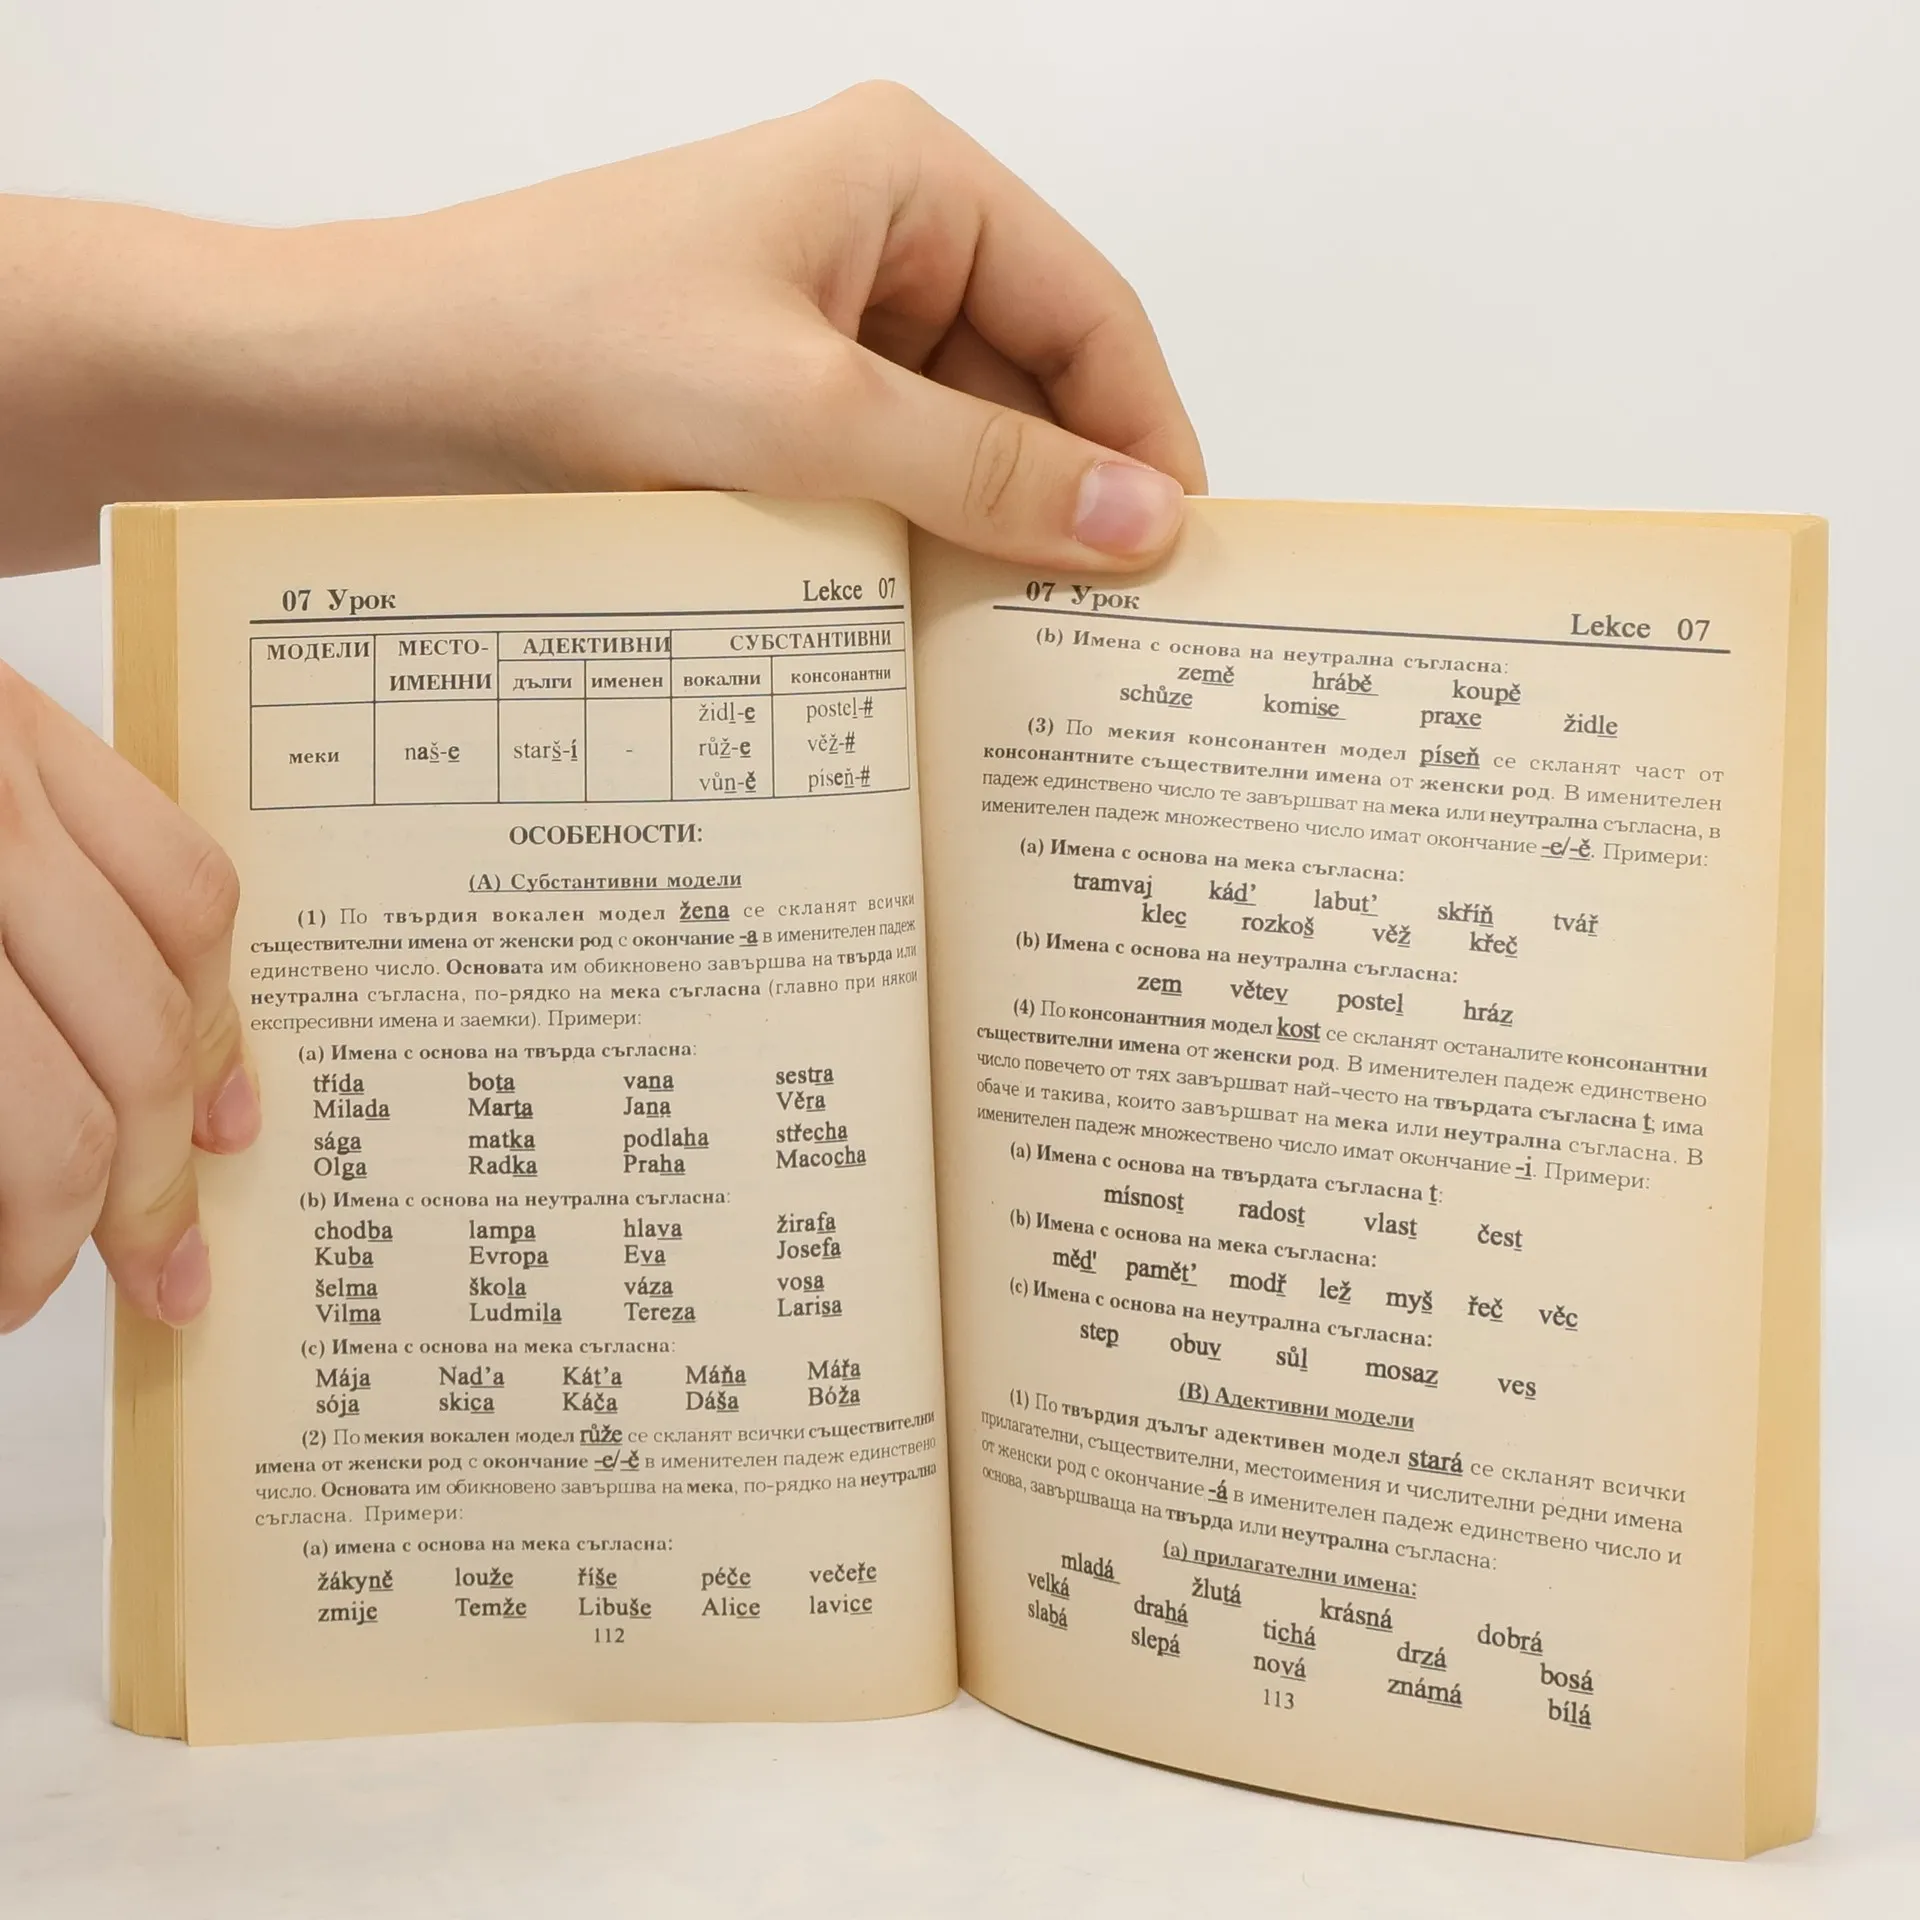 07 Урок Lekce 07
МОДЕЛИ МЕСТО- АДЕКТИВНИ СУБСТАНТИВНИ
ИМЕННИ дълги именен вокални консонантни
židl-e postel-#
меки naš-e starš-í - růž-e věž-#
vůn-ě píseň-#
ОСОБЕНОСТИ:
(A) Субстантивни модели
(1) По твърдия вокален модел žena се скланят всички
съществителни имена от женски род с окончание -a в именителен падеж
единствено число. Основата им обикновено завършва на твърда или
неутрална съгласна, по-рядко на мека съгласна (главно при някои
експресивни имена и заемки). Примери:
(a) Имена с основа на твърда съгласна:
třída bota vana sestra
Milada Marta Jana Věra
sága matka podlaha střecha
Olga Radka Praha Macocha
(b) Имена с основа на неутрална съгласна:
chodba lampa hlava žirafa
Kuba Evropa Eva Josefa
šelma škola váza vosa
Vilma Ludmila Tereza Larisa
(c) Имена с основа на мека съгласна:
Mája Nad’a Kát’a Máňa Mářa
sója skica Káča Dáša Bóža
(2) По мекия вокален модел růže се скланят всички съществителни
имена от женски род с окончание -e/-ě в именителен падеж единствено
число. Основата им обикновено завършва на мека, по-рядко на неутрална
съгласна. Примери:
(a) имена с основа на мека съгласна:
žákyně louže říše péče večeře
zmije Temže Libuše Alice lavice
112
07 Урок Lekce 07
(b) Имена с основа на неутрална съгласна:
země hrábě koupě
schůze komise praxe židle
(3) По мекия консонантен модел píseň се скланят част от
консонантните съществителни имена от женски род. В именителен
падеж единствено число те завършват на мека или неутрална съгласна, в
именителен падеж множествено число имат окончание -e/-ě. Примери:
(a) Имена с основа на мека съгласна:
tramvaj kád’ labut’ skříň tvář
klec rozkoš věž křeč
(b) Имена с основа на неутрална съгласна:
zem větev postel hráz
(4) По консонантния модел kost се скланят останалите консонантни
съществителни имена от женски род. В именителен падеж единствено
число повечето от тях завършват най-често на твърдата съгласна t; има
обаче и такива, които завършват на мека или неутрална съгласна. В
именителен падеж множествено число имат окончание -i. Примери:
(a) Имена с основа на твърдата съгласна t:
mísnost radost vlast čest
(b) Имена с основа на мека съгласна:
měd' pamět’ modř lež myš řeč věc
(c) Имена с основа на неутрална съгласна:
step obuv sůl mosaz ves
(B) Адективни модели
(1) По твърдия дълъг адективен модел stará се скланят всички
прилагателни, съществителни, местоимения и числителни редни имена
от женски род с окончание -á в именителен падеж единствено число и
основа, завършваща на твърда или неутрална съгласна:
(a) прилагателни имена:
mladá žlutá krásná dobrá
velká drahá tichá drzá bosá
slabá slepá nová známá bílá
113